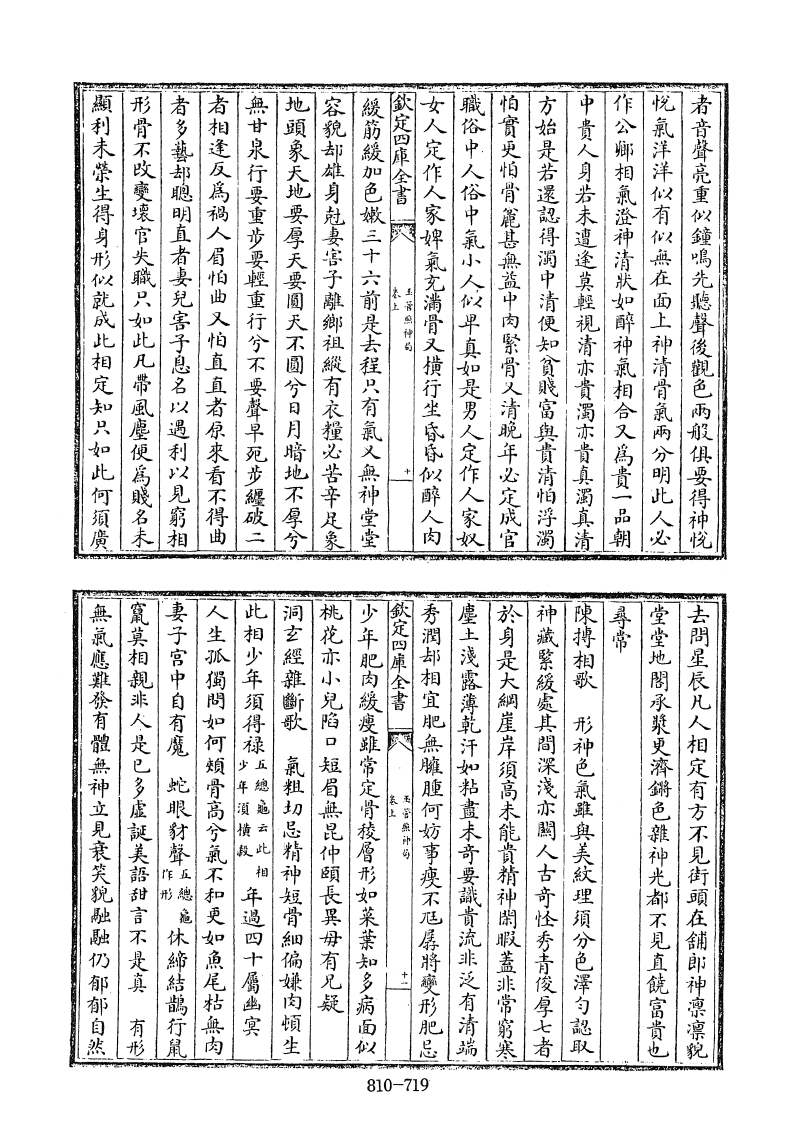 者音聲亮重似鐘鳴先聽聲後觀色兩般俱要得神悅
悅氣洋洋似有似無在面上神清骨氣兩分明此人必
作公卿相氣澄神清狀如醉神氣相合又為貴一品朝
中貴人身若未遭逢莫輕視清亦貴濁亦貴真濁真清
方始是若還認得濁中清便知貧賤富與貴清怕浮濁
怕實更怕骨麄甚無益中肉緊骨又清晚年必定成官
職俗中人俗中氣小人似卑真如是男人定作人家奴
女人定作人家婢氣充滿骨又橫行坐昏昏似醉人肉
欽定四庫全書
玉管照神局
卷上
十
緩筋緩加色嫩三十六前是去程只有氣又無神堂堂
容貌却雄身尅妻害子離鄉祖縱有衣糧必苦辛足象
地頭象天地要厚天要圓天不圓兮日月暗地不厚兮
無甘泉行要重步要輕重行兮不要聲早死步纏破二
者相逢反為禍人眉怕曲又怕直直者原來看不得曲
者多藝却聰明直者妻兒害子息名以遇利以見窮相
形骨不改變壞官失職只如此凡帶風塵便為賤名未
顯利未榮生得身形似就成此相定知只如此何須廣
去問星辰凡人相定有方不見街頭在舖郎神凛凛貌
堂堂地閣承漿更濟鏘色雜神光都不見直饒富貴也
尋常
陳摶相歌　形神色氣雖與美紋理須分色澤勻認取
神藏緊緩處其間深淺亦闗人古奇怪秀青俊厚七者
於身是大綱崖岸須高未能貴精神閑暇蓋非常窮寒
塵土淺露薄乾汗如粘盡未奇要識貴流非泛有清端
秀潤却相宜肥無臃腫何妨事瘦不尫孱將變形肥忌
欽定四庫全書
玉管照神局
卷上
十一
少年肥肉緩瘦雖常定骨稜層形如菜葉知多病面似
桃花亦小兒陷口短眉無昆仲頤長異毋有兄疑
洞玄經雜斷歌　氣粗切忌精神短骨細偏嫌肉頓生
此相少年須得禄五總龜云此相少年須橫殺年過四十屬幽冥
人生孤獨問如何頰骨高兮氣不和更如魚尾枯無肉
妻子宮中自有魔　蛇眼豺聲五總龜作形休締結鵲行鼠
竄莫相親非人是已多虛誕美語甜言不是真　有形
無氣應難發有體無神立見衰笑貌融融仍郁郁自然
810-719